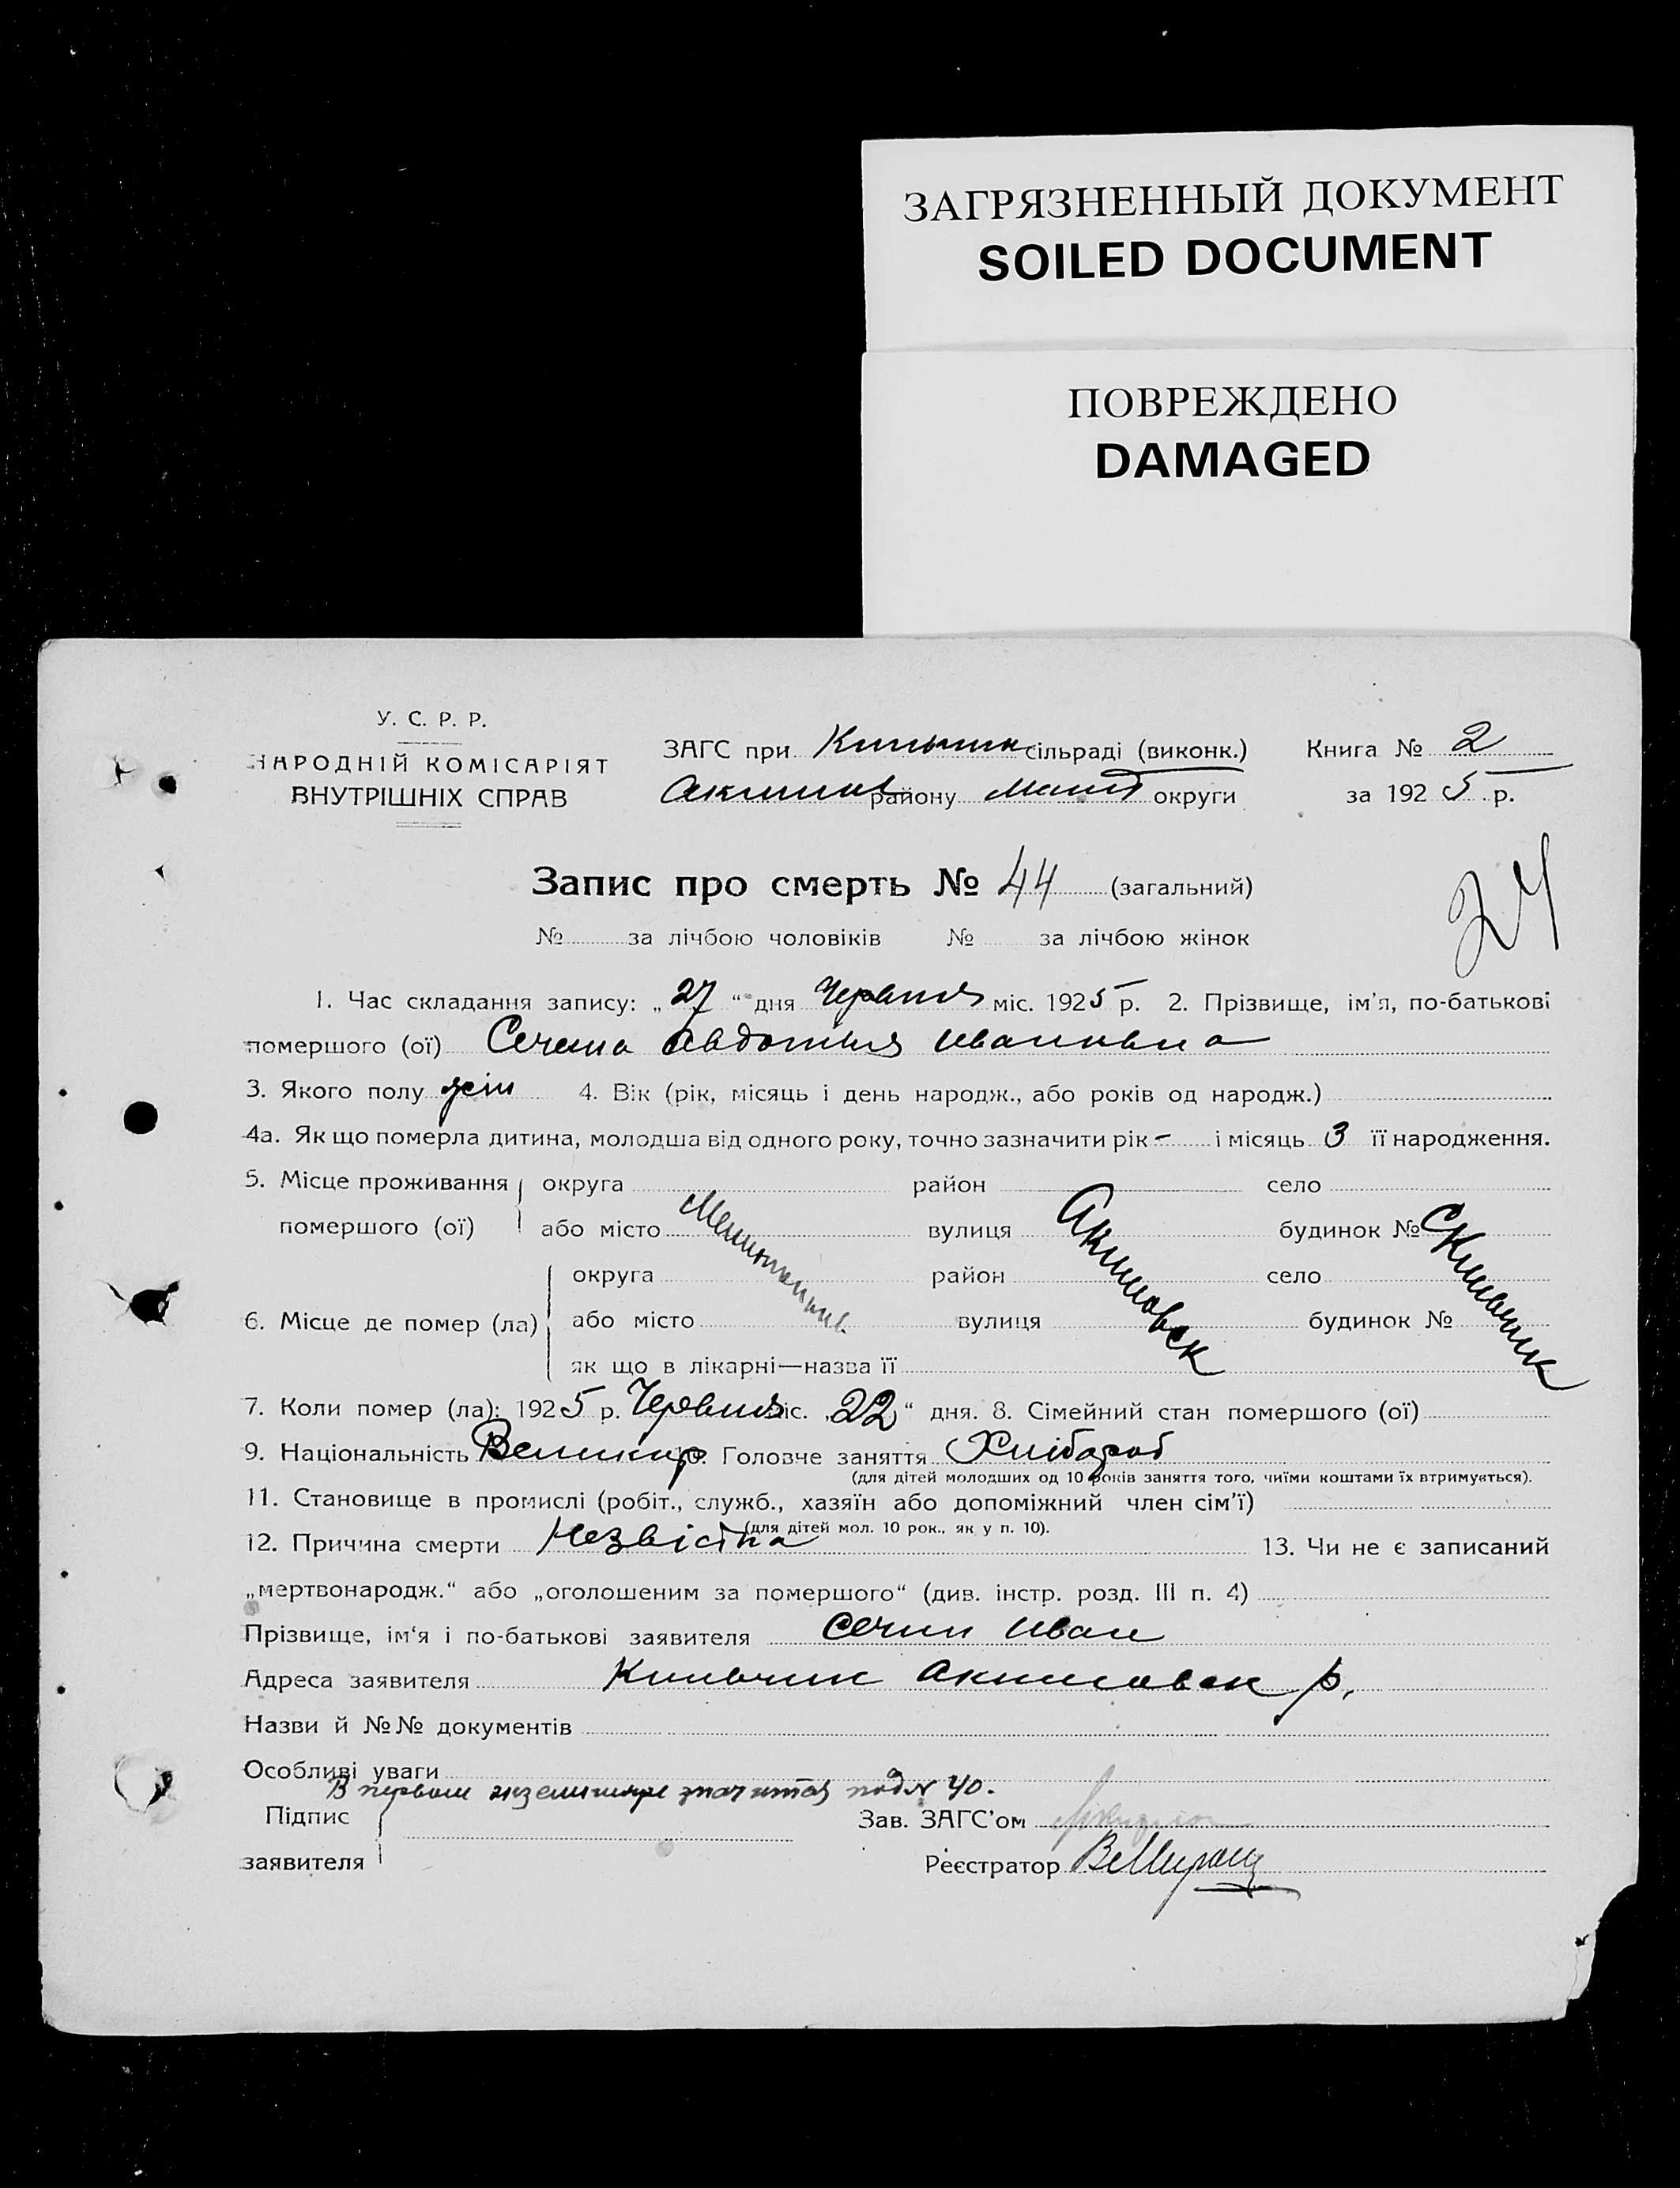 ЗАГРЯЗНЕННЫЙ ДОКУМЕНТ
SOILED DOCUMENT
ПОВРЕЖДЕНО
DAMAGED
У. С. Р. Р.
НАРОДНІЙ КОМІСАРІЯТ
ВНУТРІШНІХ СПРАВ
ЗАГС при Кильчик сільраді (виконк.)
Акимов району Мелит округи
Книга № 2
за 1925 р.
Запис про смерть № 44 (загальний)
24
№ за лічбою чоловіків № за лічбою жінок
1. Час складання запису: „27“ дня Червня міс. 1925 р. 2. Прізвище, ім’я, по-батькові
помершого (ої) Сечина Авдотья Ивановна
3. Якого полу жін 4. Вік (рік, місяць і день народж., або років од народж.)
4а. Як що померла дитина, молодша від одного року, точно зазначити рік - і місяць 3 її народження.
5. Місце проживання округа район село
помершого (ої) або місто вулиця будинок №
Акимовск
округа район село
6. Місце де помер (ла) або місто вулиця будинок №
як що в лікарні—назва її
7. Коли помер (ла): 1925 р. Червня міс. „22“ дня. 8. Сімейний стан помершого (ої)
9. Національність Великор 10. Головче заняття Хлібороб
(для дітей молодших од 10 років заняття того, чиїми коштами їх втримується).
11. Становище в промислі (робіт., служб., хазяїн або допоміжний член сім’ї)
(для дітей мол. 10 рок., як у п. 10).
12. Причина смерти Незвістна 13. Чи не є записаний
„мертвонародж.“ або „оголошеним за помершого“ (див. інстр. розд. III п. 4)
Прізвище, ім‘я і по-батькові заявителя Сечин Иван
Адреса заявителя Кильчик Акимовск р.
Назви й №№ документів
Особливі уваги
В первом экземпляре значится под № 40.
Підпис
заявителя
Зав. ЗАГС’ом
Реєстратор